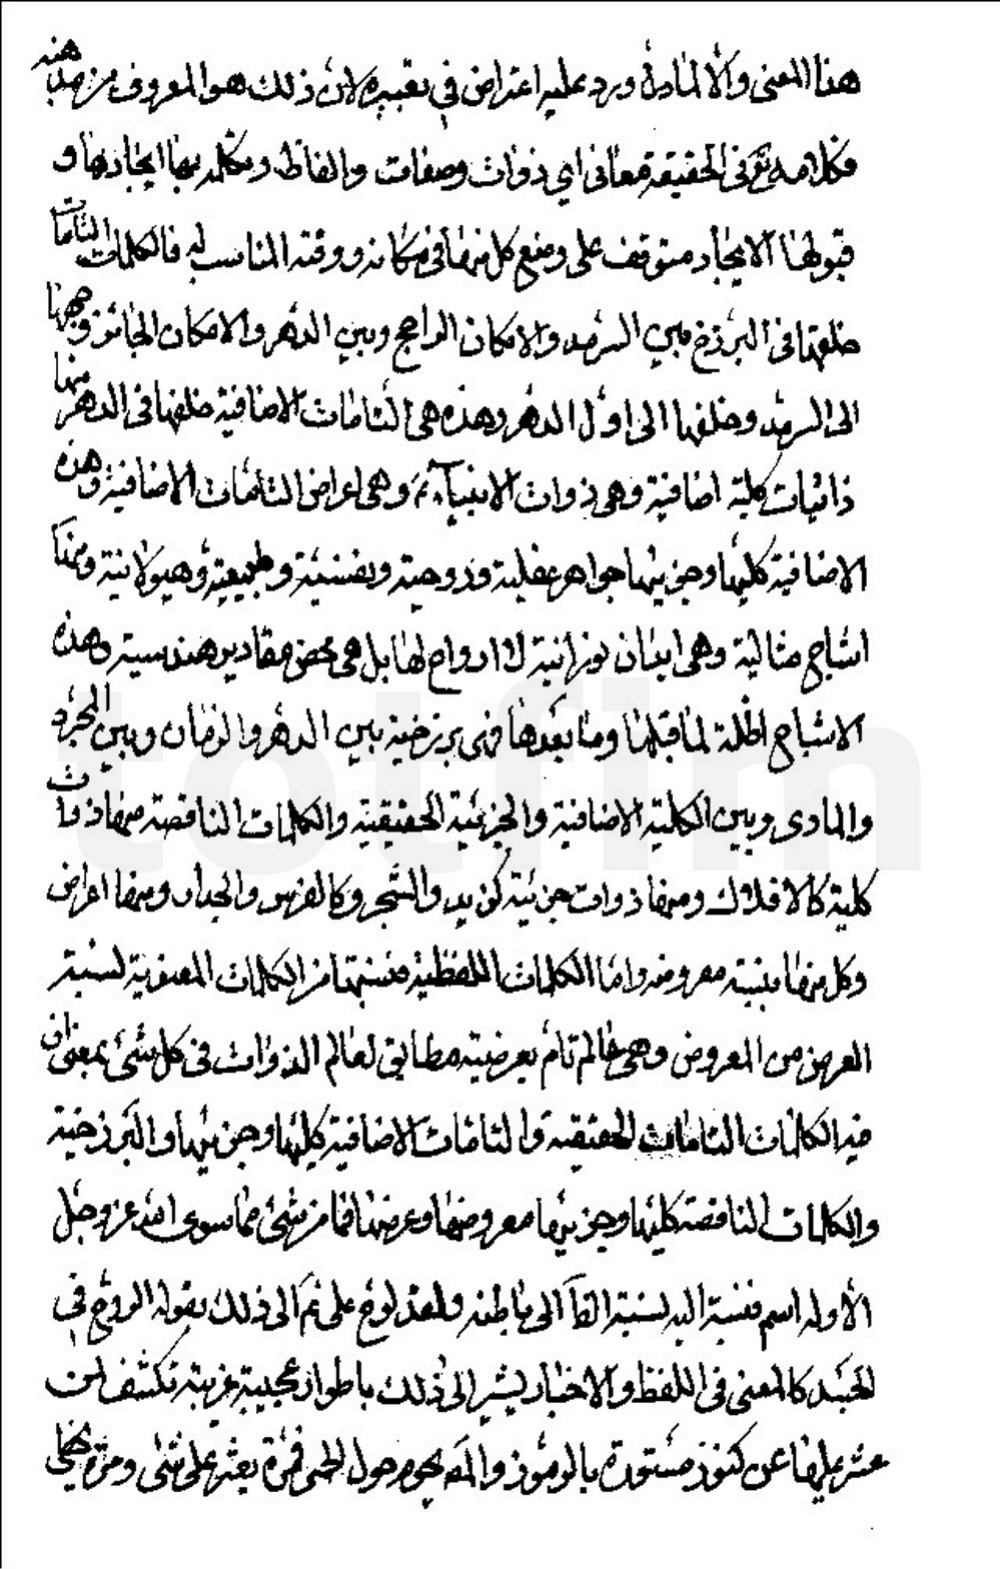 هذا المعنى والا لماده ورد عليه اعتراض في تعبيره لان ذلك هو المعروف من مذهبه
فكلامه تع في الحقيقة معاني اي ذوات وصفات والفاظ وتكلمه بها ايجادها و
قبولها الايجاد متوقف على وضع كل منها في مكانه ووقته المناسب له فالكلمات التامات
خلقها في البرزخ بين السرمد والامكان الراجح وبين الدهر والامكان الجائز وجهها
الى السرمد وخلفها الى اول الدهر وهذه هي التامات الاضافية خلقها في الدهر منها
ذاتيات كلية اضافية وهي ذوات الانبياء ع و هي اعراض التامات الاضافية وهذه
الاضافية كليها وجزئيها جواهر عقلية وروحية ونفسية وطبيعية وهيولانية ومنها
اشباح مثالية وهي ابدان نورانية لا ارواح لها بل هي محض مقادير هندسية وهذه
الاشباح اظلة لما قبلها وما بعدها فهي برزخية بين الدهر والزمان وبين المجرد
والمادى وبين الكلية الاضافية والجزئية الحقيقية والكلمات الناقصة منها ذوات
كلية كالافلاك ومنها ذوات جزئية كزيد والشجر وكالفرس والجدار ومنها اعراض
وكل منها بنسبة معروضه واما الكلمات اللفظية فنسبتها من الكلمات المعنوية نسبة
العرض من المعروض وهي عالم تام بعرضيته مطابق لعالم الذوات في كل شئ بمعنى ان
فيه الكلمات التامات الحقيقية والتامات الاضافية كليها وجزئيها والبرزخية
والكلمات الناقصة كليها وجزئيها معروضها وعرضها فما من شئ مما سوى الله عز وجل
الا وله اسم نسبته اليه نسبة الظا الى باطنه ولقد لوح على ع الى ذلك بقوله الروح في
الجسد كالمعنى في اللفظ والاخبار تشير الى ذلك باطوار عجيبة غريبة تكشف لمن
عثر عليها عن كنوز مستورة بالرموز والله يحوم حول الحمى فمرة يعثر على شئ ومرة